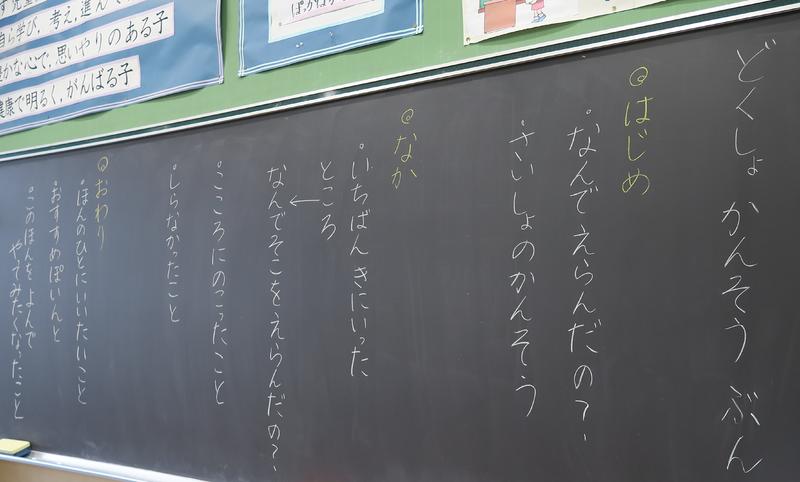 どくしょ かんそう ぶん
@はじめ
・なんでえらんだの?
・さいしょのかんそう
@なか
・いちばん きにいった
ところ
←
なんでそこをえらんだの?
・こころにのこったこと
・しらなかったこと
@おわり
・ほんのひとにいいたいこと
・おすすめぽいんと
・このほんを よんで
やってみたくなったこと
自ら学び、考え、進んで
豊かな心で、思いやりのある子
健康で明るく、がんばる子